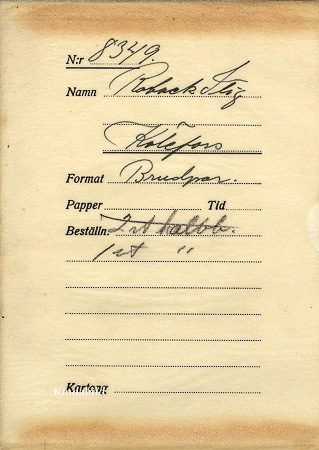 N:r 8349.
Namn Roback Stig
Kolefors
Format Brudpar.
Papper Tid
Beställn. 2 st halbb.
1 st "
Kartong